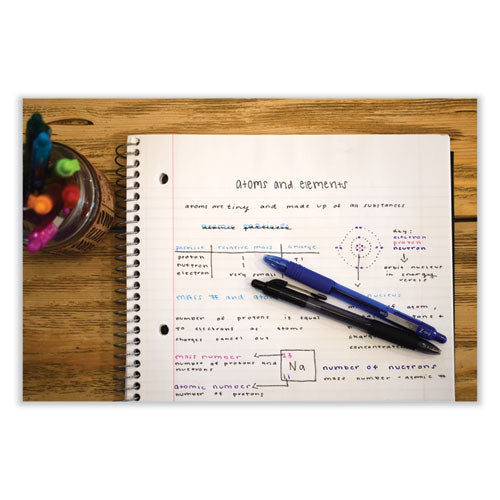 atoms and elements
atoms are tiny and made up of all substances
atomic particles
particle relative mass charge
proton 1 +1
neutron 1
electron very small
Key:
electron
proton
neutron
orbit nucleus
in energy
levels
mass # and ato
nucleus
number of protons is equal
to electrons so atomic
charges cancel out
of atom,
protons +
concentrat
mass number
number of protons and
neutrons
atomic number
number of protons
23
Na
11
number of neutrons
mass number - atomic #